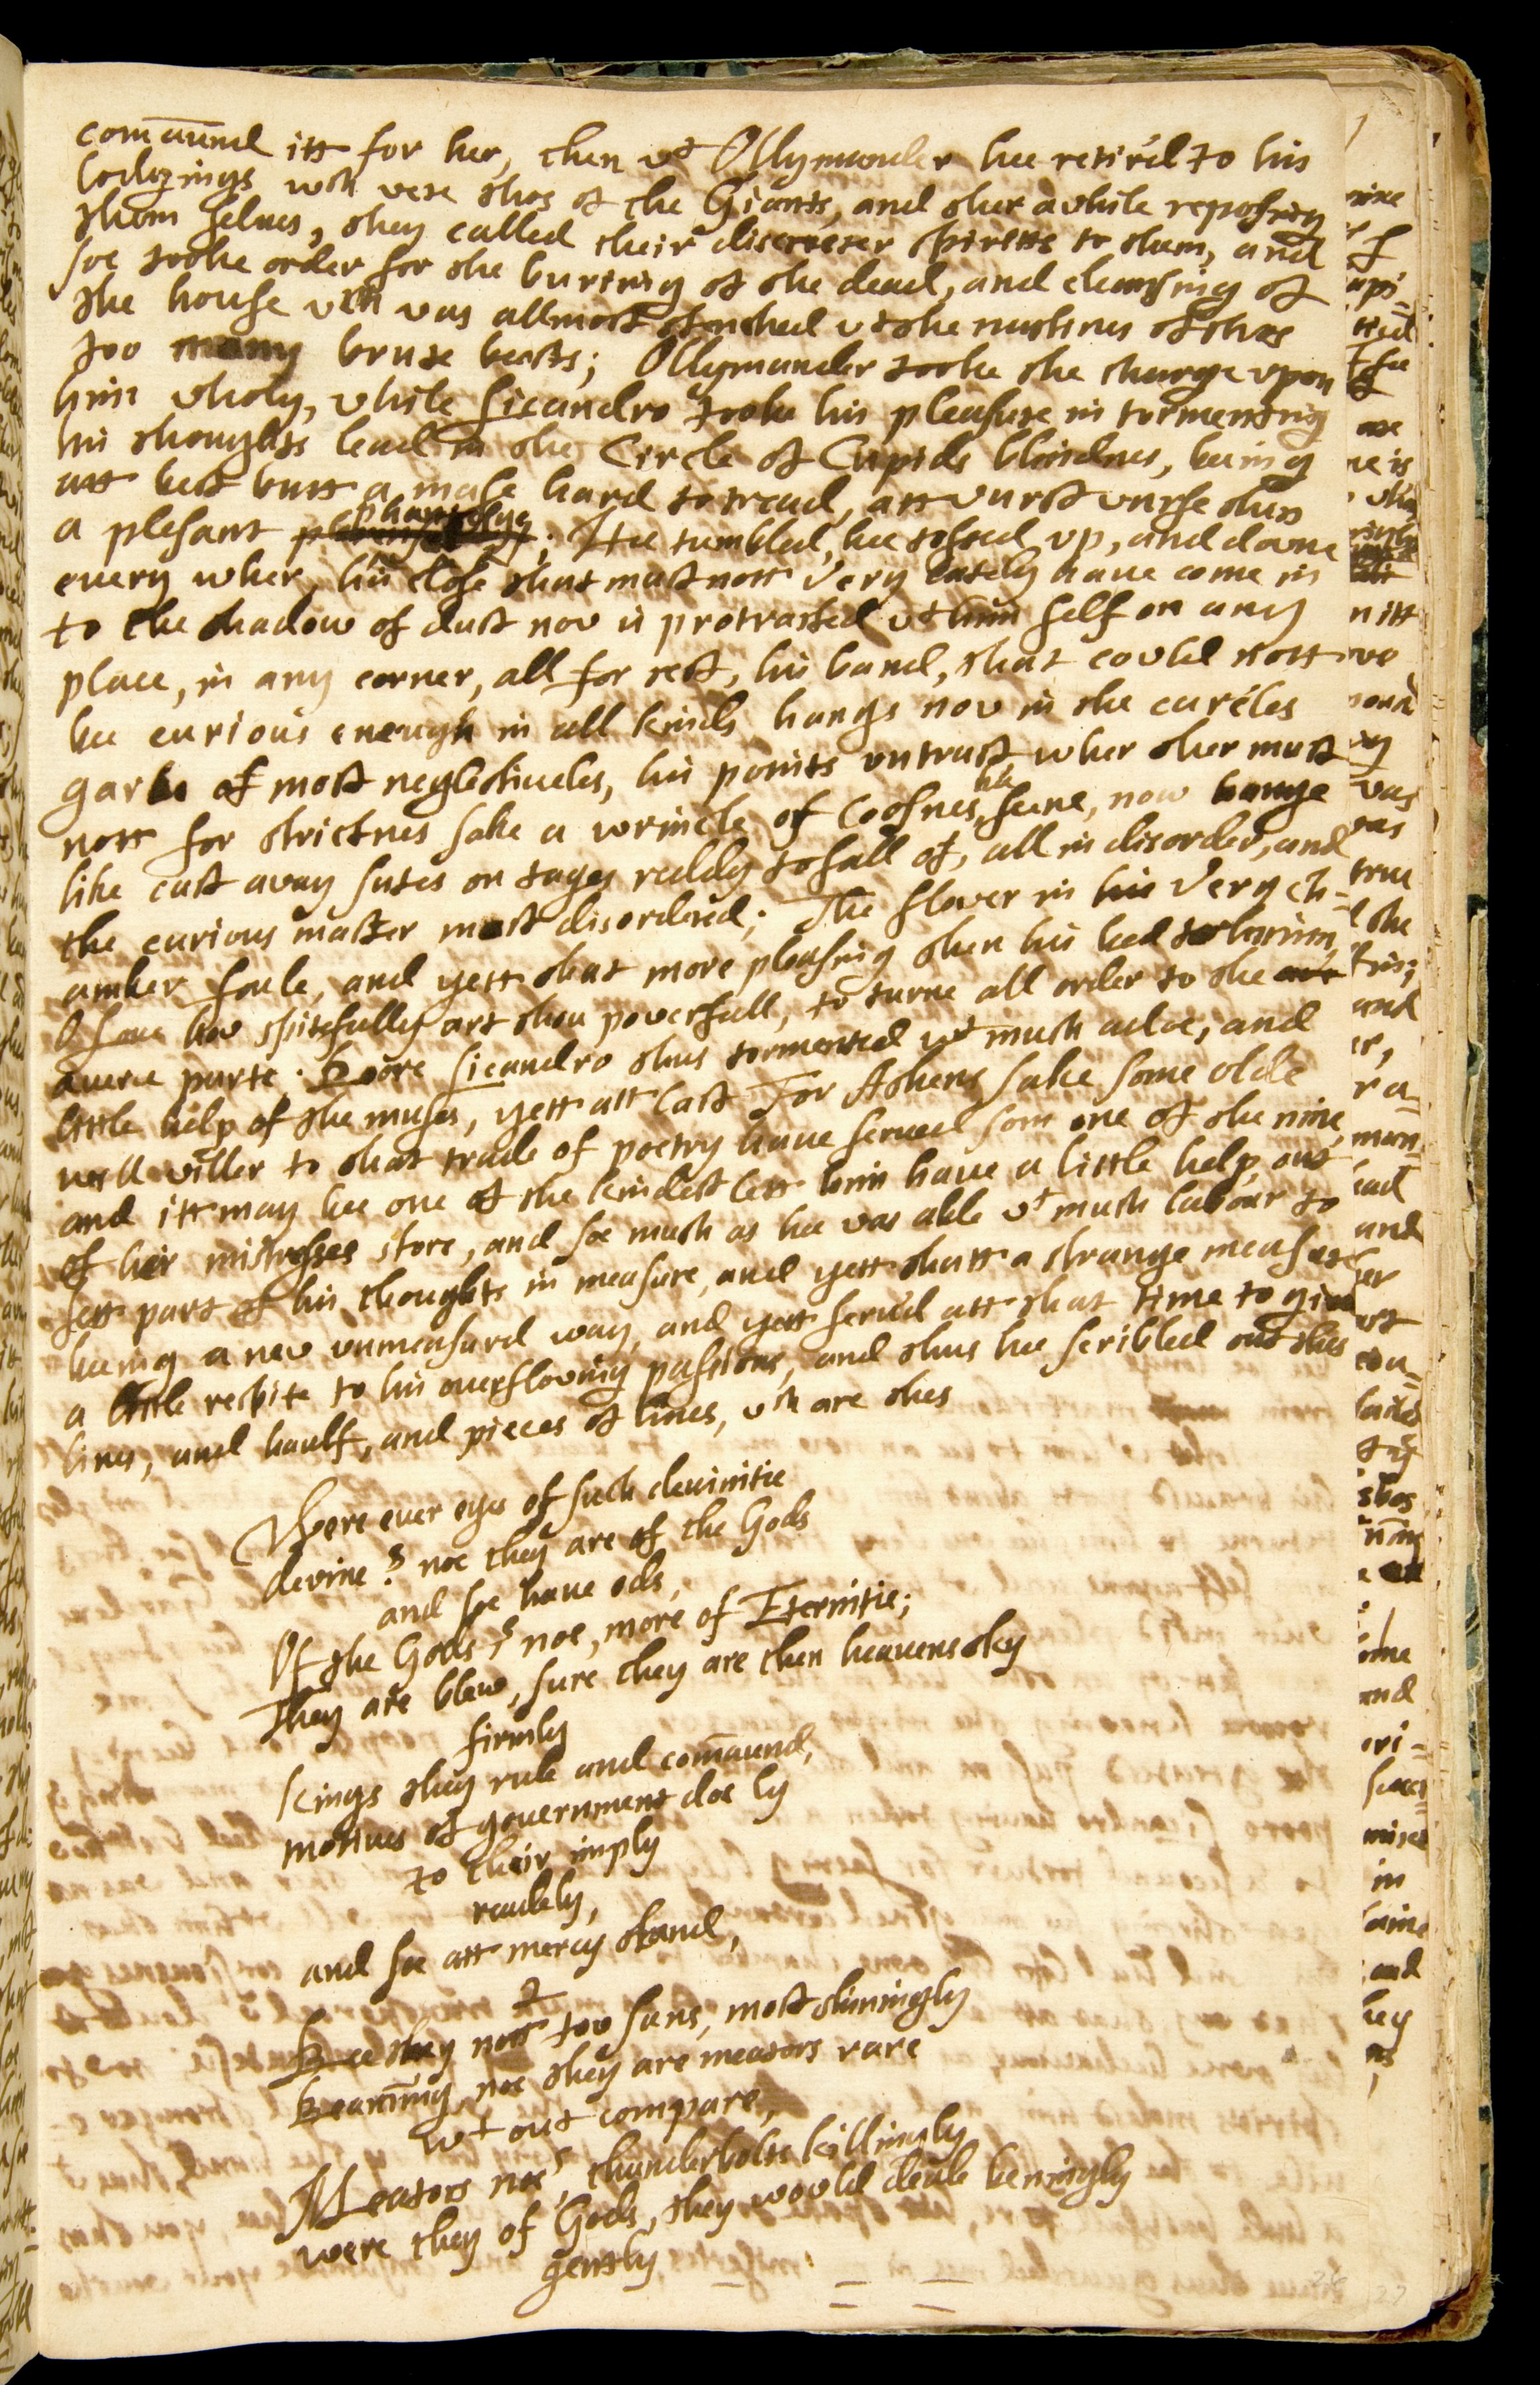 comaund itt for her, then wt Ollymander hee retir'd to his
lodgings wch were thos of the Giants, and ther a while reposing
them selves, they called their discreeter spiritts to them, and
soe tooke order for the buriing of the dead, and clearsing of
the house wch was allmost stenched wt the nastines of thes
too many brute beasts; Ollymander tooke the charge upon
him wholy, while Licandro tooke his pleasure in tormenting
his thoughts lead in the Circle of Cupids blindnes, beeing
att best butt a mase hard to tread, att wurst wurse then
a plesant phantesye; Hee tumbled, hee tossed up, and downe
every wher, his close that must nott very easely have come in
to the shadow of dust now is protracted wt him self on any
place, in any corner, all for rest, his band, that could nott
bee curious enough in all kinds hangs now in the careles
garbe of most neglectivenes, his points untrust wher ther must
nott for strictnes sake a wrincle of Loosnes bee seene, now hange
like cast away sutes on tages reddy to fall of, all in disorder, and
the curious master most disordered; The flower in his very ch=
amber foule, and yett that more pleasing then his bed to him,
O Love how spitefully art thou powerfull, to turne all order to the
averce parte. Poore Licandro thus tormented wt much adoe, and
little help of the muses, yett att last For Athens sake some olde
well willer to that trade of poetry have served som one of the nine,
and itt may bee one of the kindest lett him have a little help out
of her mistresses store, and soe much as hee was able wt much labour to
sett part of his thoughts in measure, and yett thatt a strange measure
beeing a new unmeasurd way, and yett serv'd att that time to give
a little respite to his overflowing passions, and thus hee scribled out thes
lines, and haulf, and pieces of lines, wch are thes
Were ever eyes of such devinitie
devine? noe they are of the Gods
and soe have ods,
Of the Gods? noe, more of Eternitie;
They are blew, sure they are then heavens sky
firmly
kings they rule and comaund,
motives of government doe ly
to their imply
readely,
and soe att mercy stand,
2
Bee they nott too suns, most shiningly
Beaming, noe they are meators rare
wt out compare,
Meators noe, thunderbolts killingly
were they of Gods, they would deale beningly
gently